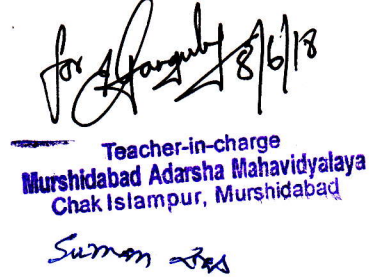 for Ganguly 8/6/18
Teacher-in-charge
Murshidabad Adarsha Mahavidyalaya
Chak Islampur, Murshidabad
Suman Das